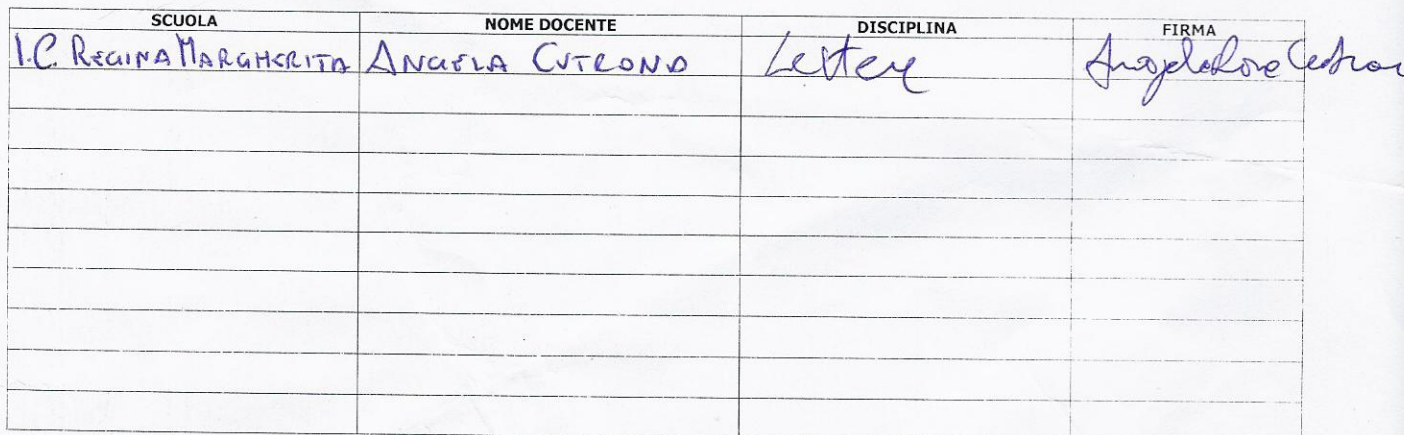 SCUOLA NOME DOCENTE DISCIPLINA FIRMA
I.C. REGINA MARGHERITA ANGELA CUTRONO Lettere